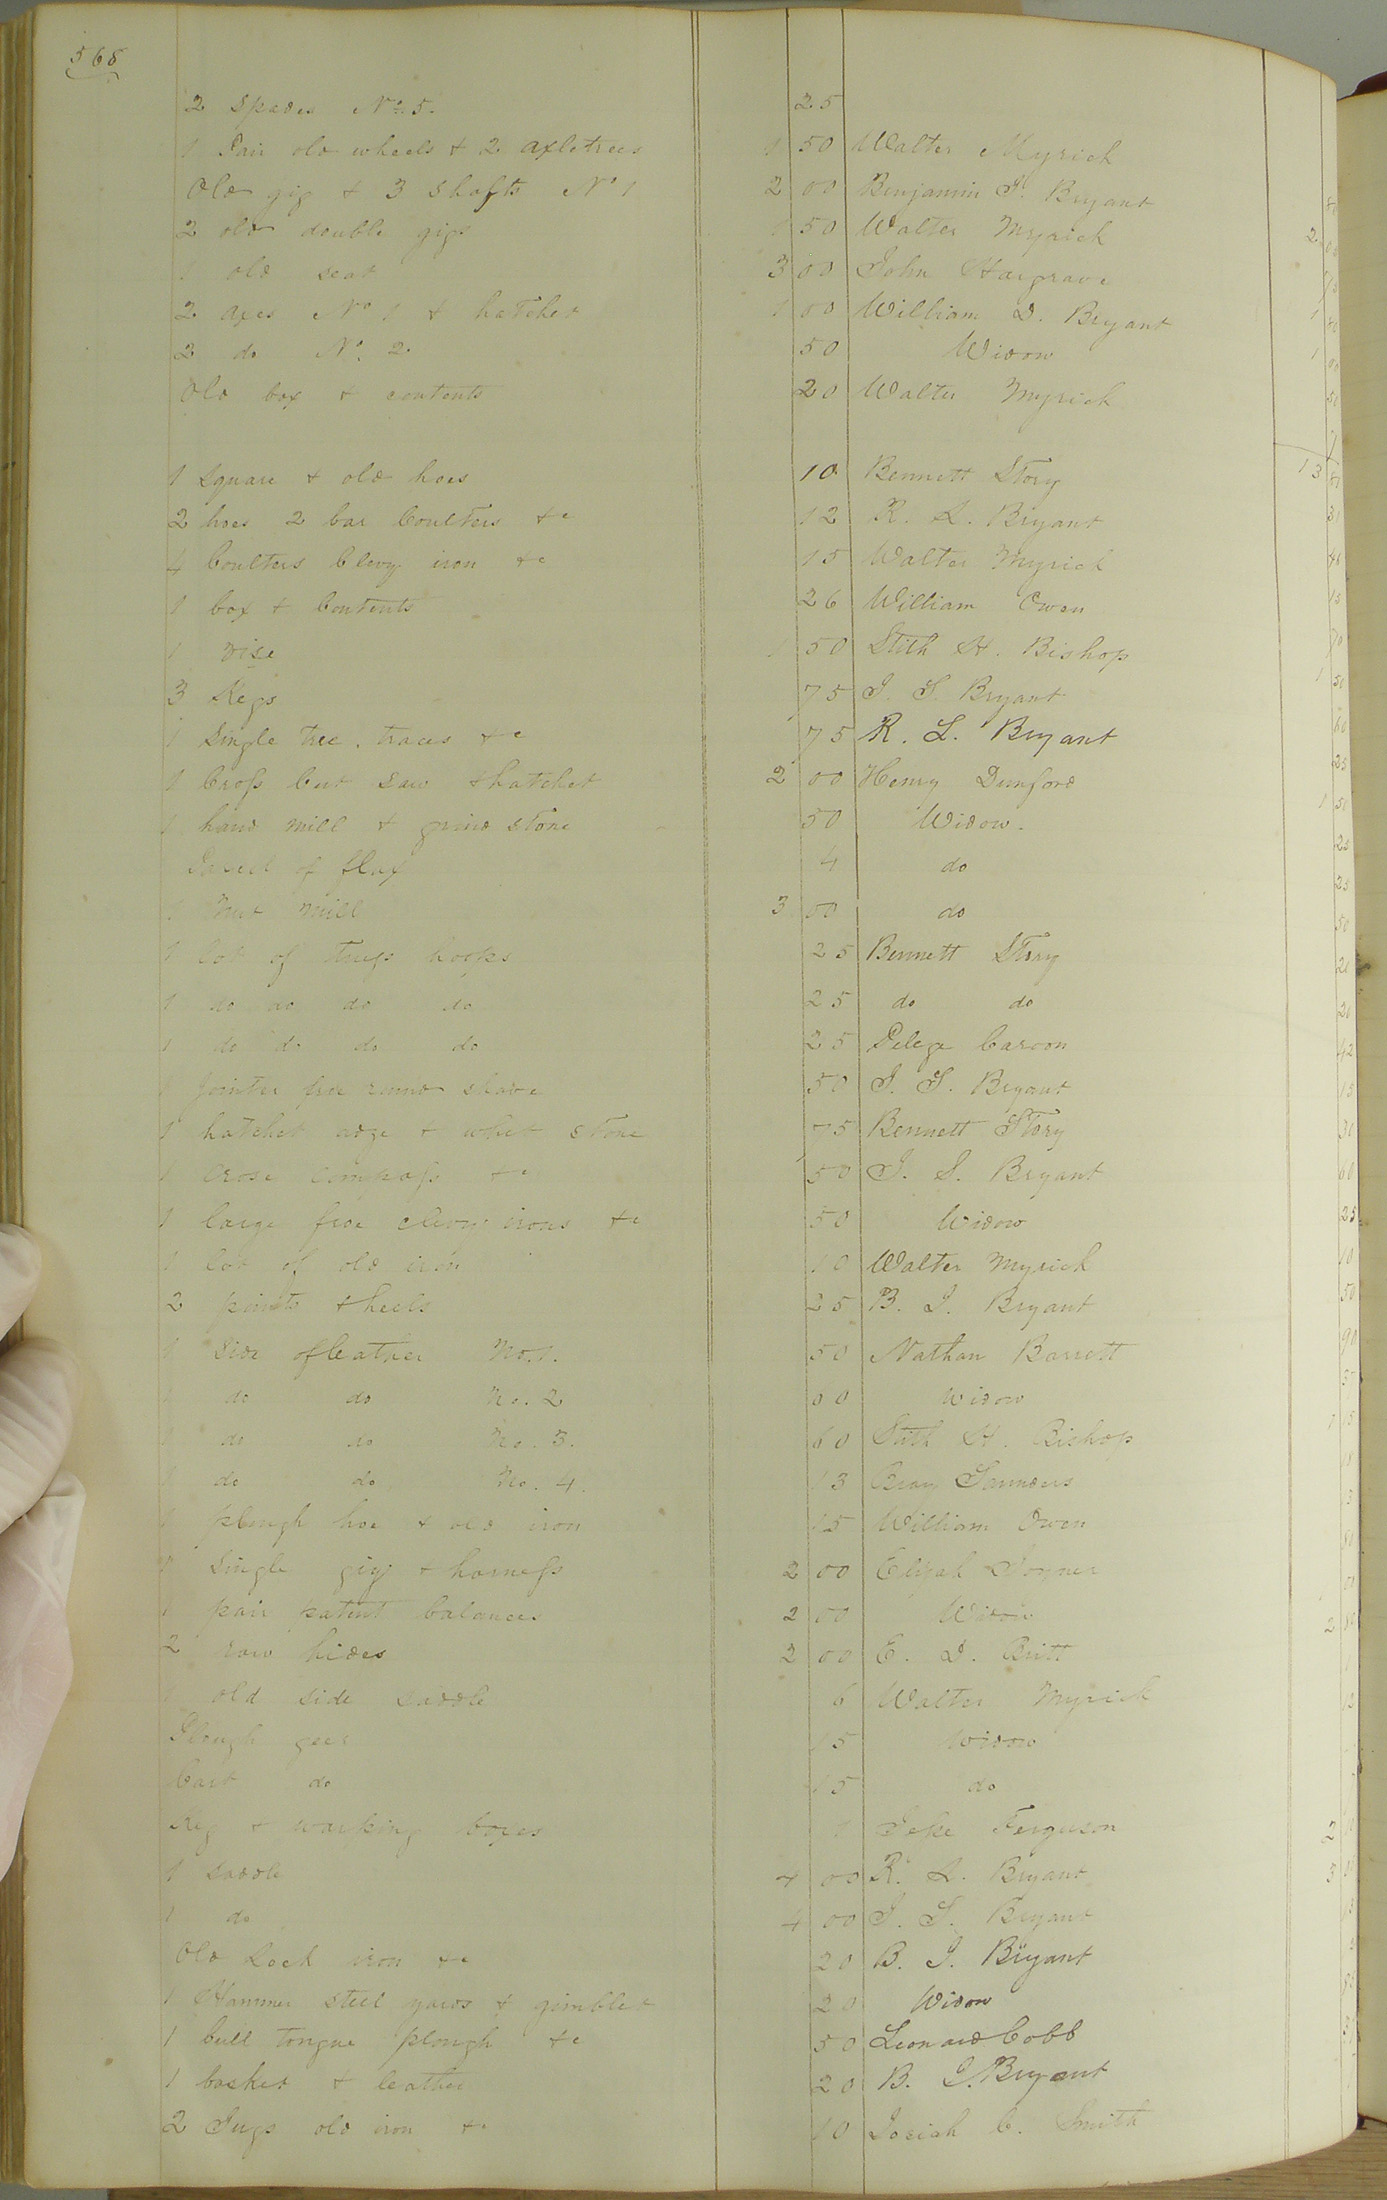 568
2 Spades No. 5. 25
1 Pair old wheels & 2 axletrees 1 50 Walter Myrick
Old gig & 3 shafts No 1 2 00 Benjamin J. Bryant
2 old double gigs 1 50 Walter Myrick
1 old seat 3 00 John Hargrave
2 axes No 1 & hatchet 1 00 William D. Bryant
2 do No. 2. 50 Widow
Old box & contents 20 Walter Myrick
1 Square & old hoes 10 Bennett Story
2 hoes 2 bar Coulters &c 12 R. L. Bryant
4 Coulters Clevy iron &c 15 Walter Myrick
1 box & Contents 26 William Owen
1 vise 1 50 Stith H. Bishop
3 Kegs 75 J. S. Bryant
1 Single tree, traces &c 75 R. L. Bryant
1 Cross Cut saw & hatchet 2 00 Henry Dunford
1 hand mill & grind stone 50 Widow.
Parcel of flax 4 do
1 Nut Mill 3 00 do
1 lot of truss hoops 25 Bennett Story
1 do do do do 25 do do
1 do do do do 25 Pelege
1 Jointer froe round shave 50 J. S. Bryant
1 hatchet adze & whet stone 75 Bennett Story
1 crose compass &c 50 J. S. Bryant
1 large froe clevy irons &c 50 Widow
1 lot of old iron 10 Walter Myrick
2 points & heels 25 B. J. Bryant
1 Side of leather No. 1. 50 Nathan Barrett
1 do do No. 2 00 Widow
1 do do No. 3. 60 Stith H. Bishop
1 do do No. 4. 13 Saunders
1 plough hoe & old iron 15 William Owen
1 Single gig & harness 2 00 Elijah Joyner
1 pair patent balances 2 00 Widow
2 raw hides 2 00 E. D. Britt
1 old side saddle 6 Walter Myrick
Plough geer 15 Widow
Cart do 15 do
Keg & warping boxes 1 Ferguson
1 saddle 4 00 R. L. Bryant
1 do 4 00 J. S. Bryant
Old Lock iron &c 20 B. J. Bryant
1 Hammer steel yards & gimblet 20 Widow
1 bull tongue plough &c 50 Leonard Cobb
1 basket & leather 20 B. J. Bryant
2 Jugs old iron &c 10 Josiah C. Smith